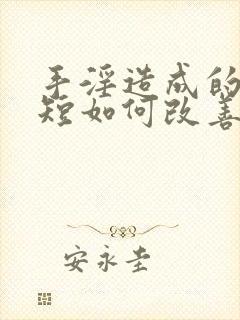 手淫造成的
短如何改善
安永圭